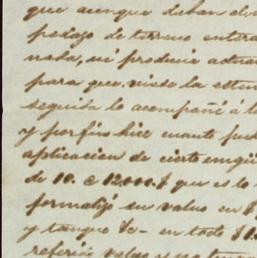 que aunque daban el
pedazo de terreno entera
nada, ni producia actua
para que viese la
seguida le acompañé á l
y por fin hice cuanto pud
aplicacion de cierto
de 10. á 12.000.$ que es lo
formalizó su valus en $
y tanque &c— en todo $
referir valus